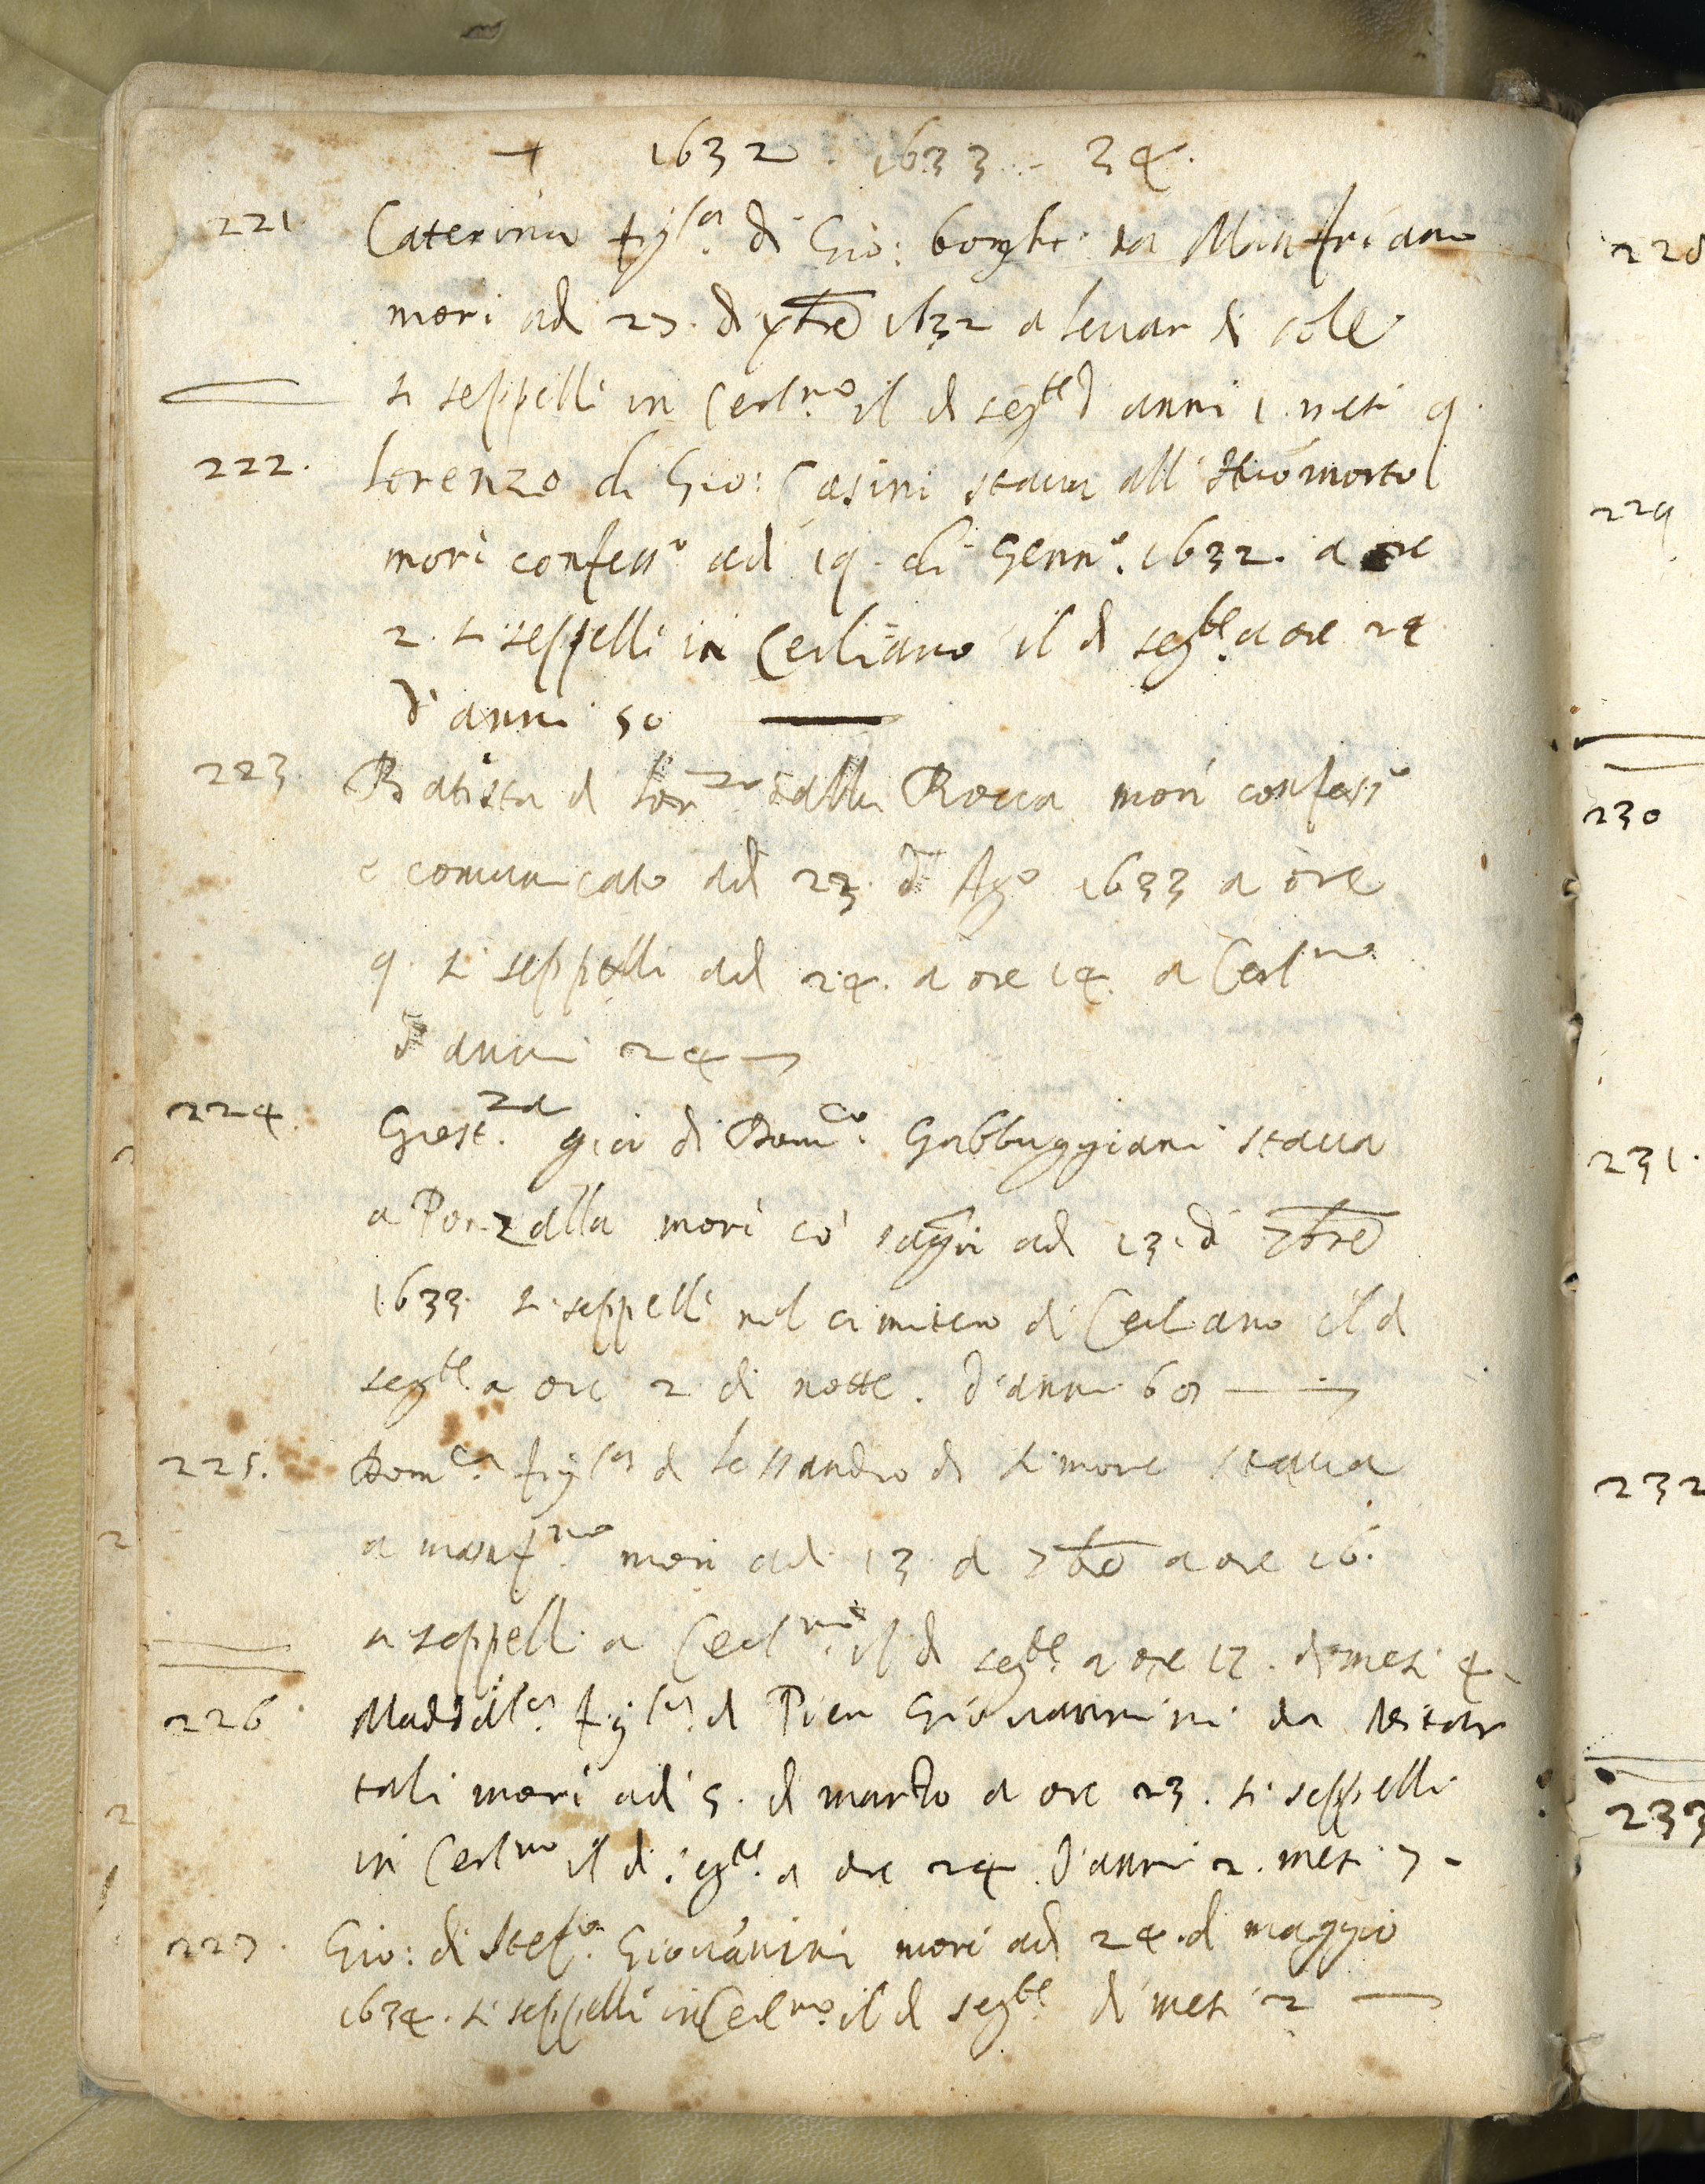 + 1632 . 1633 - 34.
221. Caterina figl.a di Gio: borghi da Manfriano
mori ad 27. di xbre 1632 a leuar di sole
si seppelli in Cerl.no il di seg.te d anni 1. mesi 9.
222. Lorenzo di Gio: Casini staua all'
mori confess.o ad 19. di Genn.o 1632. a ore
2. si seppelli in Cerliano il di seg.te a ore 24
d'anni 50
223. Batista di Lor.zo dalla Rocca mori confess.o
e comunicato ad 23. di Ag.o 1633 a ore
9. si seppelli ad 24. a ore 14. a Cerl.no
d anni 24
224. già di Dom.co Gabbuggiani staua
a Ponzalla mori co' ad 13. di 7bre
1633. si seppelli nel cimitero di Cerliano il di
seg.te a ore 2. di notte. d'anni 60
225. Dom.ca figl.a di Lessandro di Simone staua
a manf.no mori ad 13. di 7bre a ore 16.
si seppelli a Cerl.no il di seg.te a ore 17. di mesi 4
226. Maddal.a figl.a di Piero Giouannini da
tali mori ad 5. di marzo a ore 23. si seppelli
in Cerl.no il di seg.te a ore 24. d'anni 2. mesi 7 -
227. Gio: di Stef.o Giouanini mori ad 24. di maggio
1634. si seppelli in Cerl.no il di seg.te di mesi 2
229
230
231.
232
233